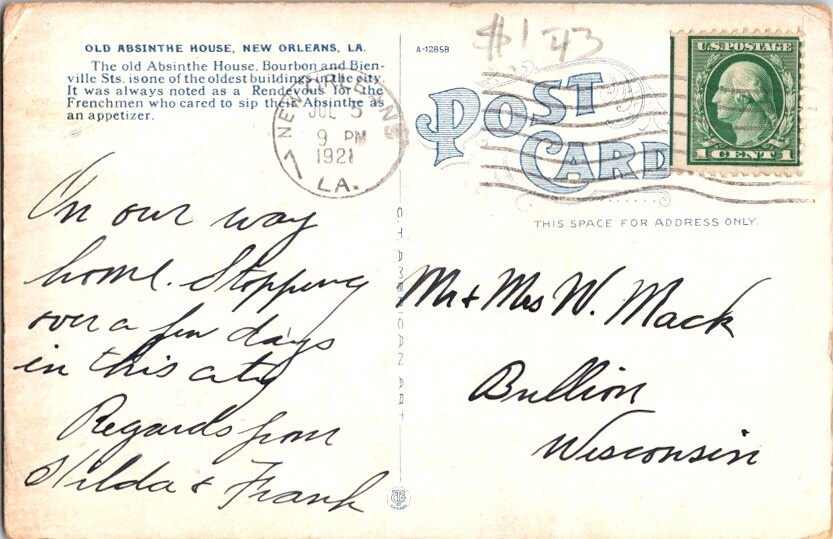 OLD ABSINTHE HOUSE, NEW ORLEANS, LA.
The old Absinthe House, Bourbon and Bien-
ville Sts. is one of the oldest buildings in the city.
It was always noted as a Rendevous for the
Frenchmen who cared to sip their Absinthe as
an appetizer.
A-12858
$1
NEW ORLEANS
JUL 5
9 PM
1921
LA.
7
U.S. POSTAGE
1 CENT 1
POST
CARD
THIS SPACE FOR ADDRESS ONLY.
On our way
home. Stopping
over a few days
in this city
Regards from
Hilda & Frank
C.T. AMERICAN ART
Mr & Mrs W. Mack
Bullion
Wisconsin